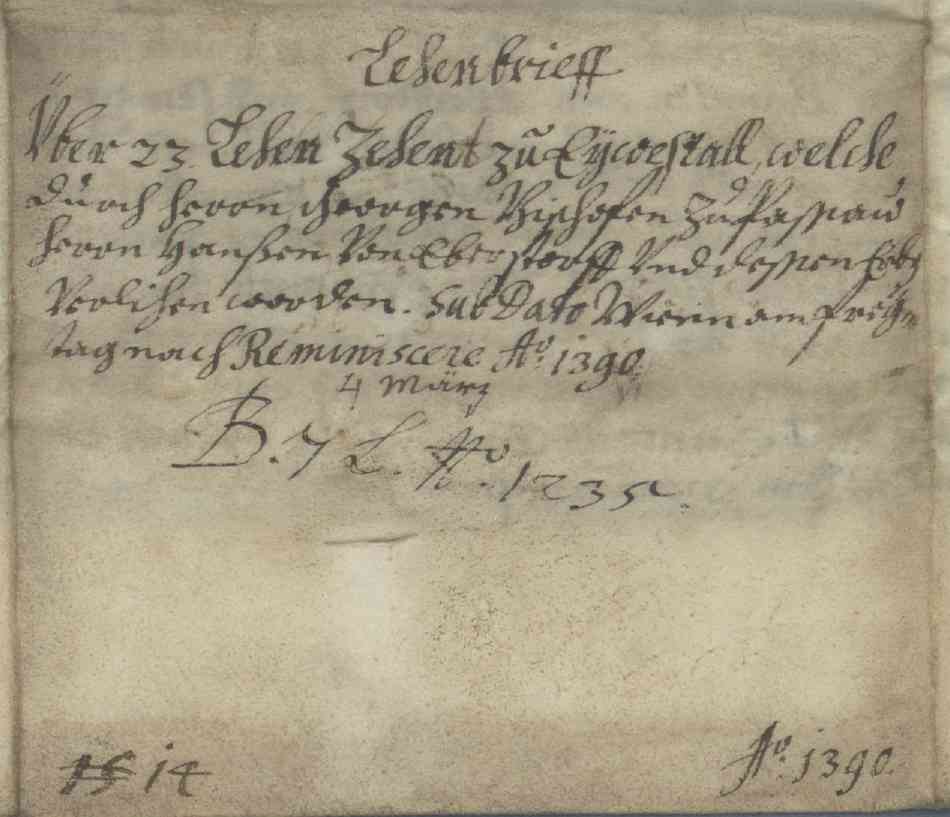 Lehenbrieff
Über 23 Lehen Zehent zu Eywestall, welche
durch herrn Georgen Bischofen zu Passaw
herrn Hanßen Von Eberstorff Vnd dessen Erbn
Verlihen worden. Sub Dato Wienn am freÿ
tag nach Reminiscere Aº. 1390.
4 März
B. 7 L. Nº. 1235.
15 14
Aº. 1390.